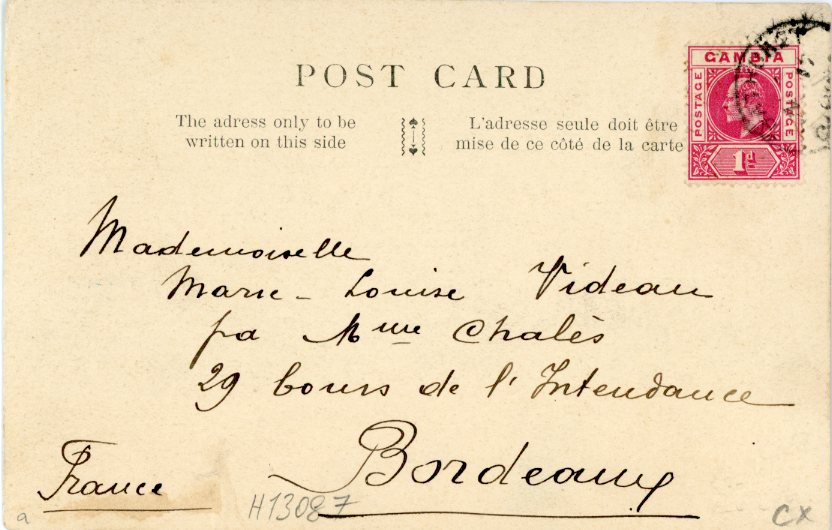 POST CARD
The adress only to be
written on this side
L'adresse seule doit être
mise de ce côté de la carte
GAMBIA
POSTAGE
POSTAGE
1d
Mademoiselle
Marie-Louise Videau
Mme Chalès
29 Cours de l'Intendance
Bordeaux
France
H13087
a
CX